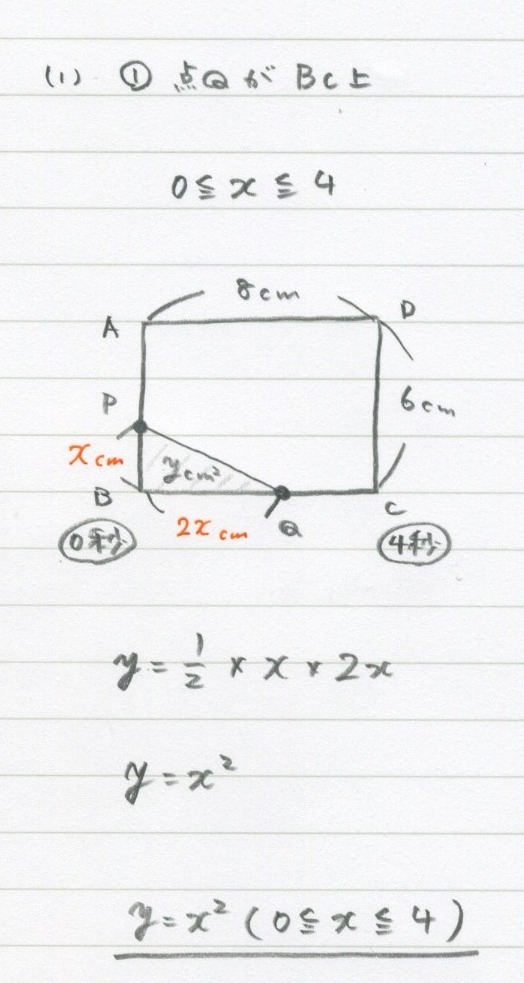 (1) ① 点Qが BC上
0≦x≦4
8cm
A
D
P
6cm
xcm
ycm²
B
C
2xcm
Q
0秒
4秒
y=1/2×x×2x
y=x²
y=x² (0≦x≦4)